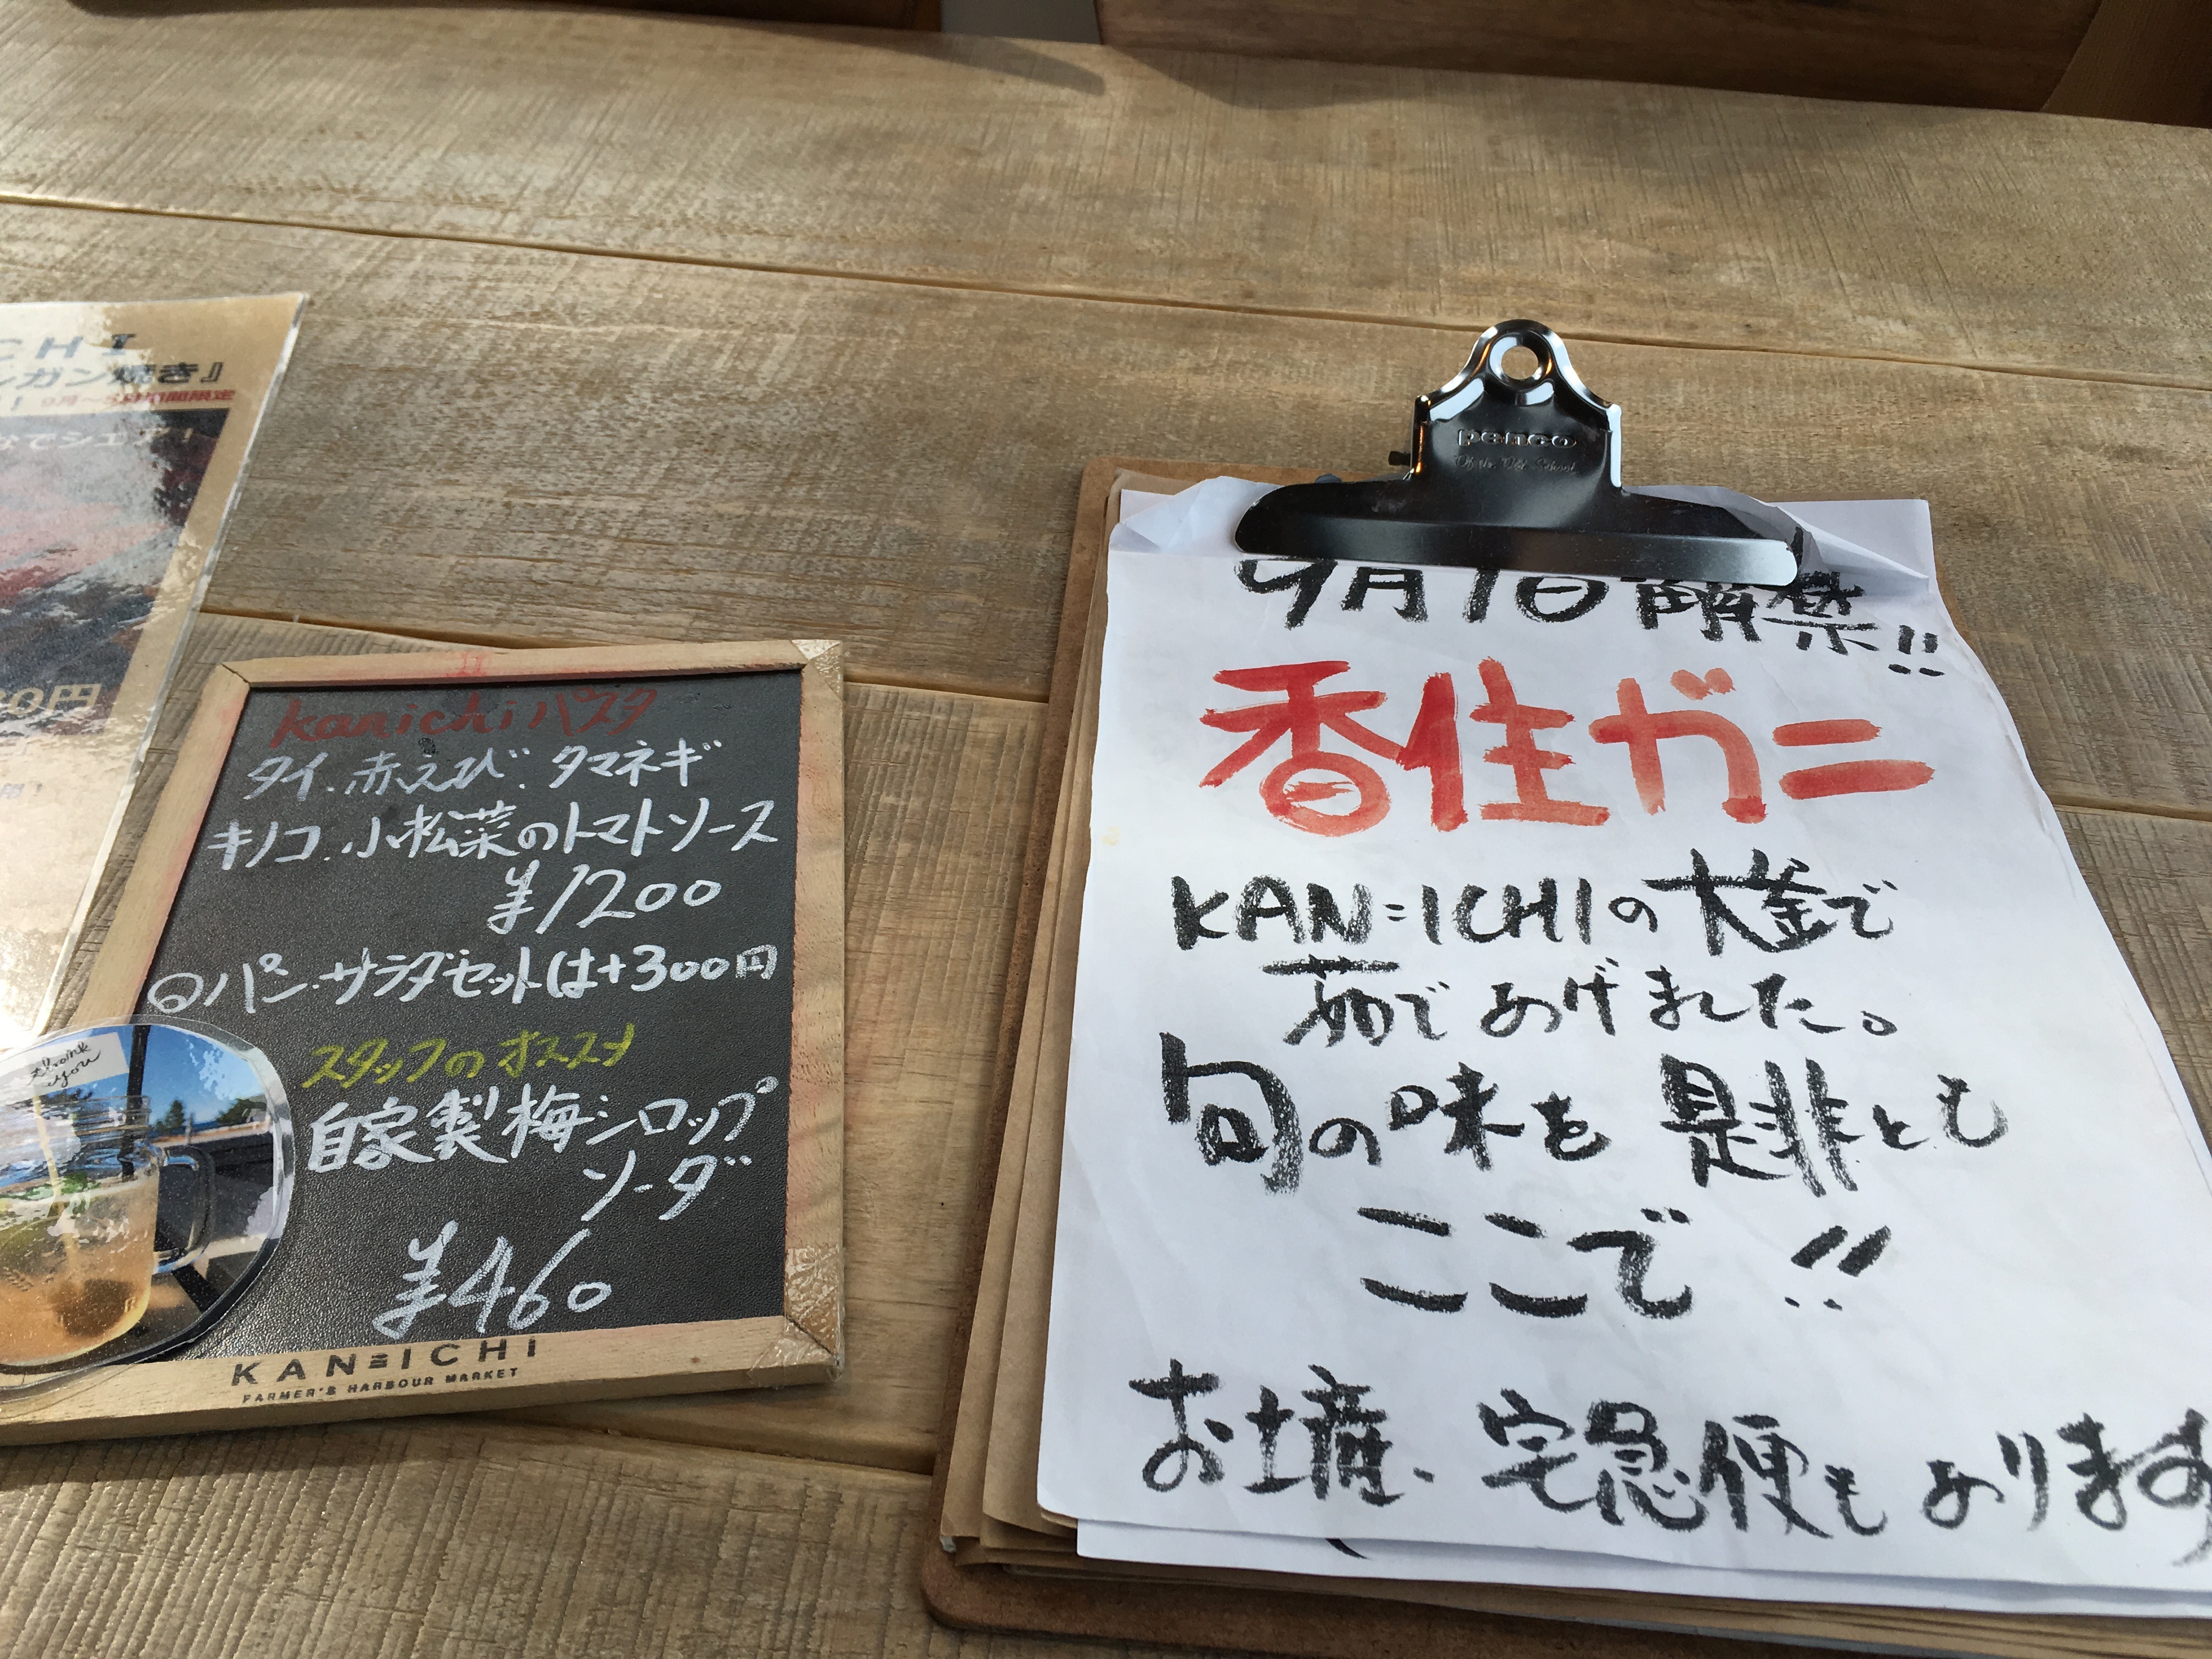 CHI
ガン焼き』
なでシェア！
0円
kanichiパスタ
タイ、赤えび、タマネギ
キノコ、小松菜のトマトソース
¥1200
◎パン・サラダセットは+300円
スタッフのオススメ
自家製梅シロップ
ソーダ
¥460
thank
you
KAN=ICHI
FARMER'S HARBOUR MARKET
penco
9月1日解禁!!
香住ガニ
KAN=ICHIの大釜で
茹であげました。
旬の味を是非とも
ここで!!
お土産、宅急便もあります